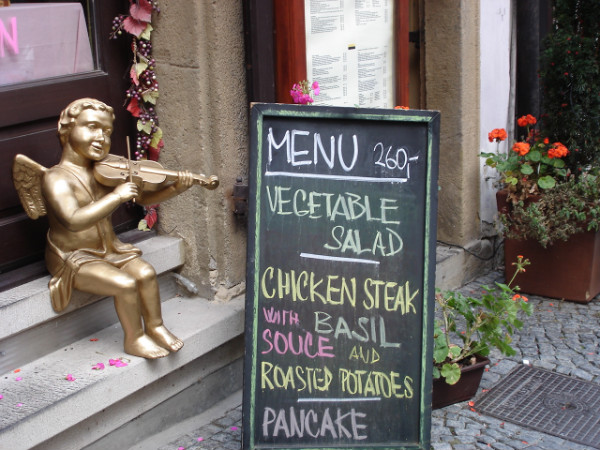 MENU 260,-
VEGETABLE
SALAD
CHICKEN STEAK
WITH BASIL
SOUCE AND
ROASTED POTATOES
PANCAKE